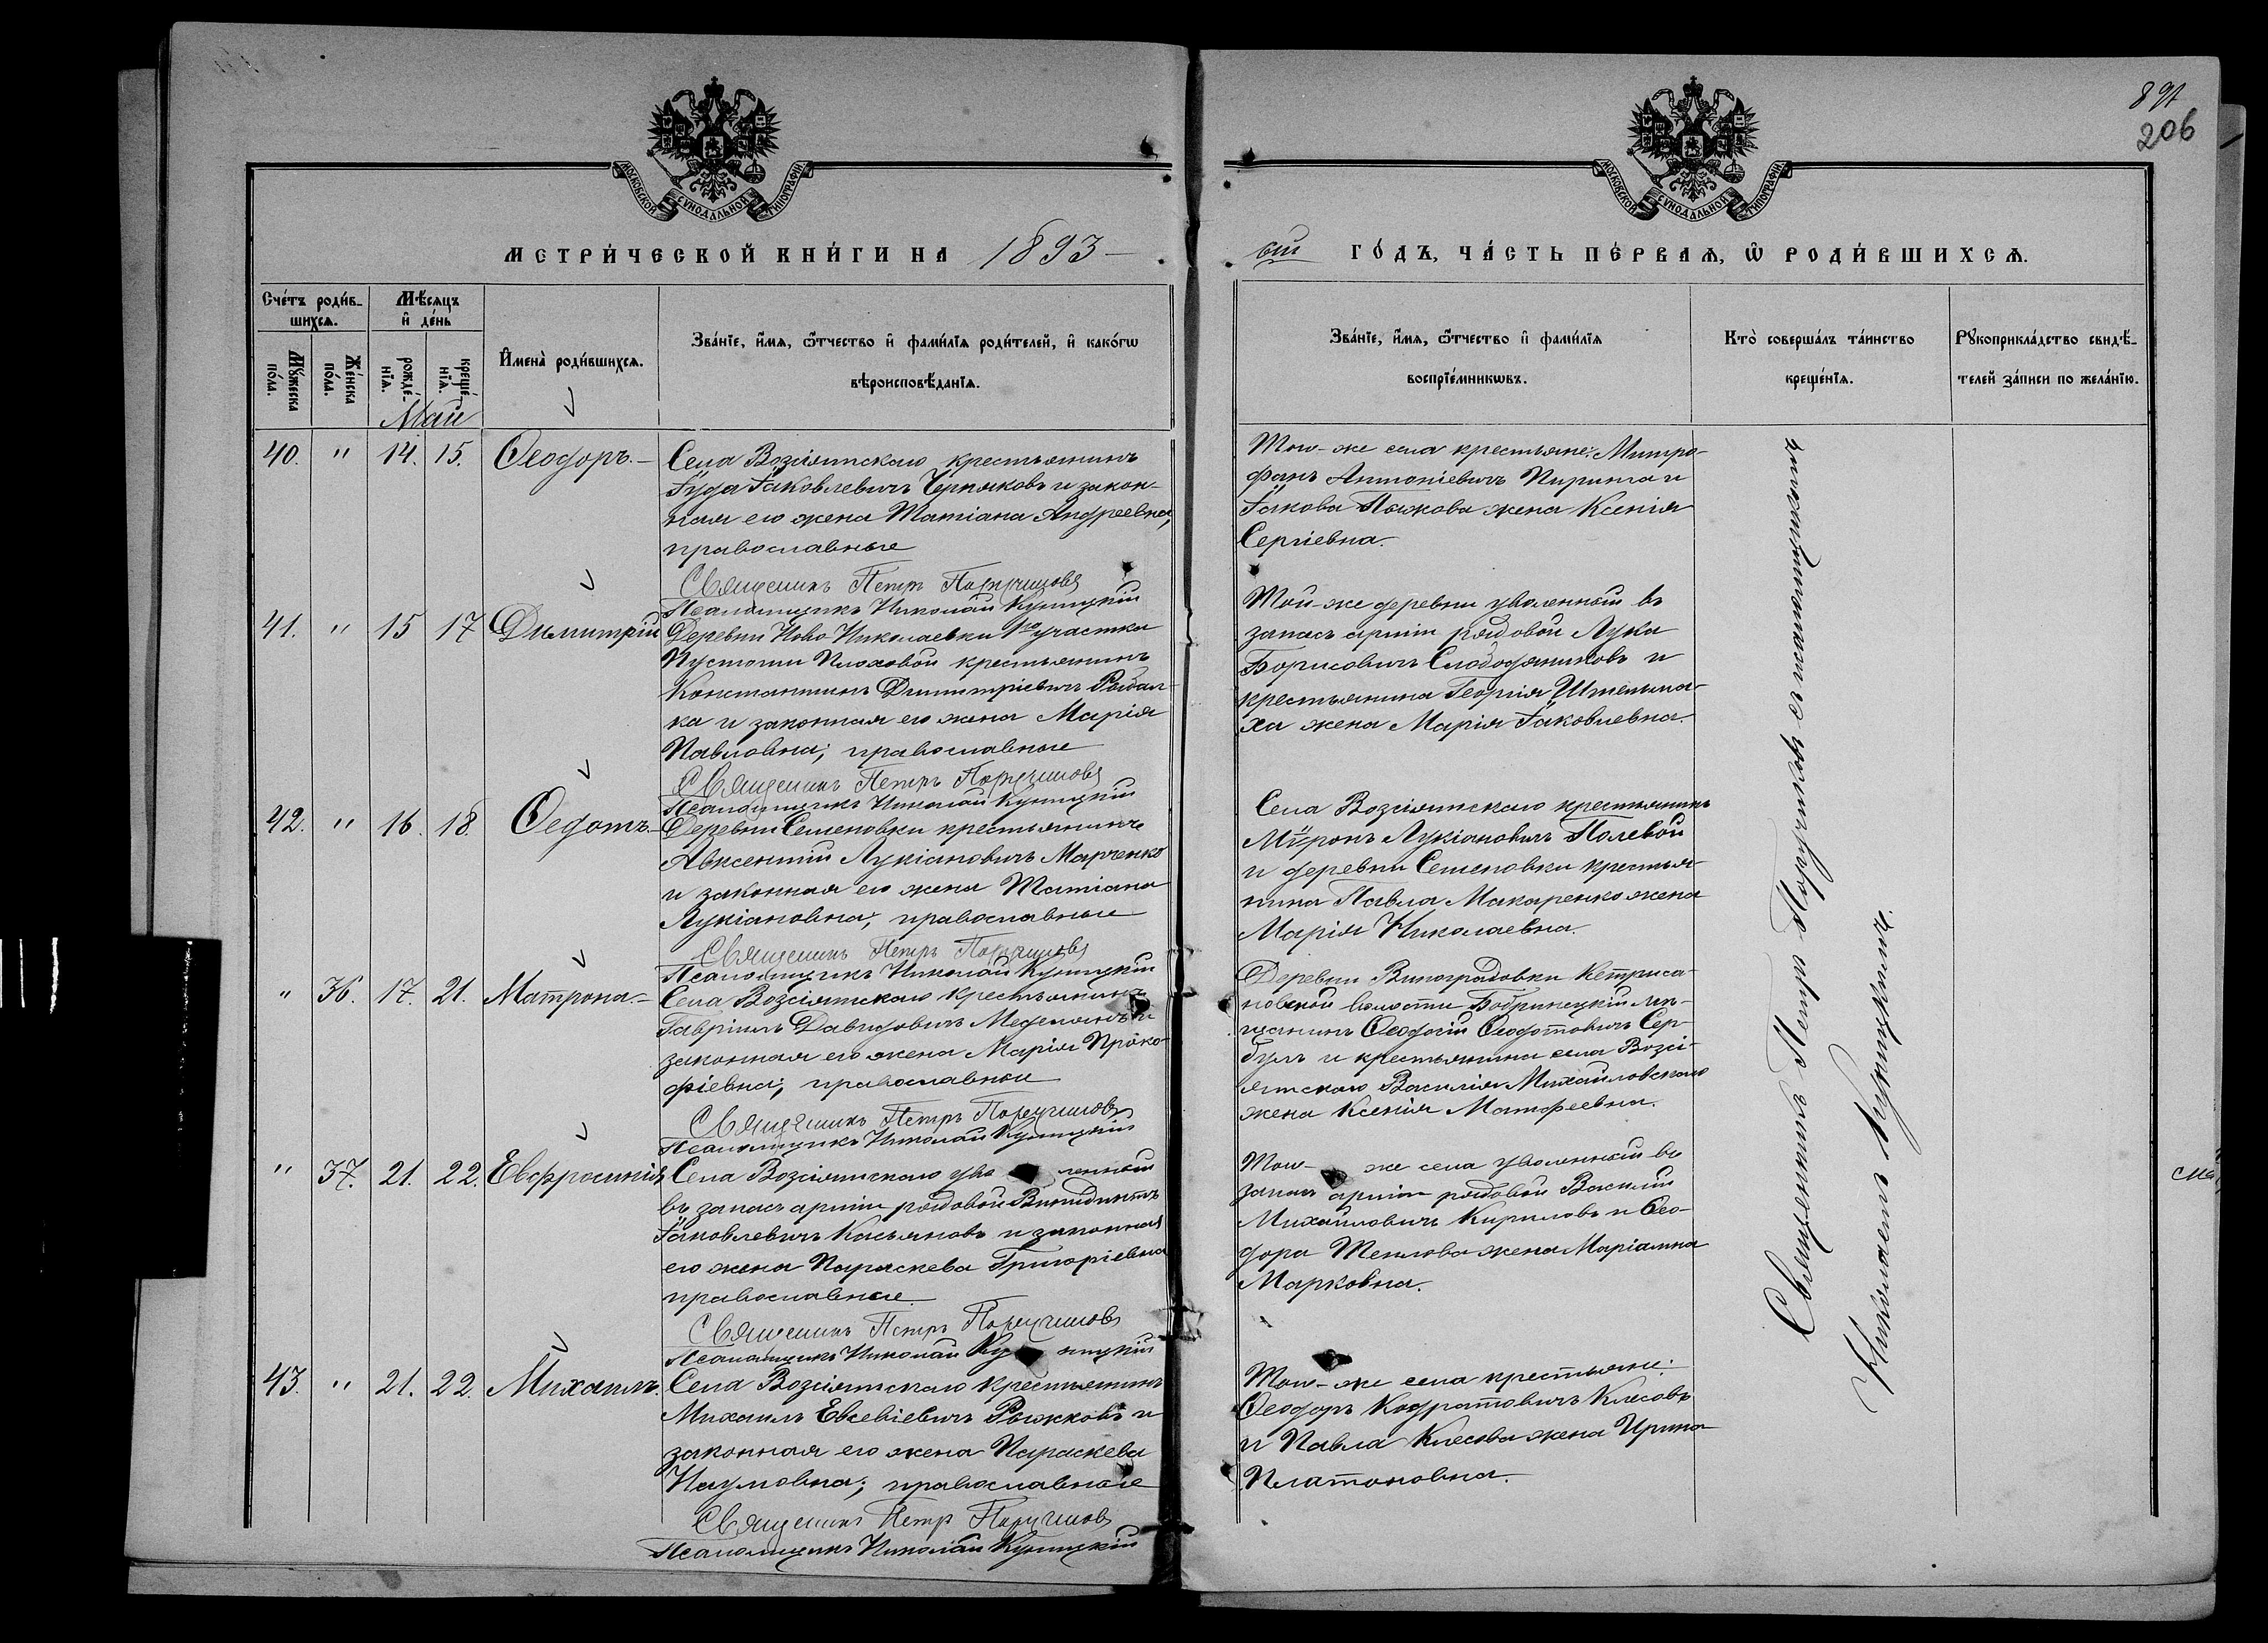 891
206
МОСКОВСКОЙ СѴНОДАЛЬНОЙ ТИПОГРАФІИ
МОСКОВСКОЙ СѴНОДАЛЬНОЙ ТИПОГРАФІИ
МЕТРИ́ЧЕСКОЙ КНИ́ГИ НА 1893-
ый ГО́ДЪ, ЧА́СТЬ ПЕ́РВАѦ, Ѡ҆ РОДИ́ВШИХСѦ.
Сче́тъ роди́в-
шихсѧ.
Мѣ́сѧцъ
и҆ де́нь
Мꙋ́жеска
по́ла.
Же́нска
по́ла.
рожде́-
нїѧ.
креще́-
нїѧ.
И҆мена̀ роди́вшихсѧ.
Зва́нїе, и҆́мѧ, ѻ҆́тчество и҆ фами́лїѧ роди́телей, и҆ како́гѡ
вѣроисповѣ́данїѧ.
Зва́нїе, и҆́мѧ, ѻ҆́тчество и҆ фами́лїѧ
воспрїе́мникѡвъ.
Кто̀ соверша́лъ та́инство
креще́нїѧ.
Рꙋкоприкла́дство свидѣ́-
телей за́писи по жела́нїю.
Май
40. " 14. 15. Ѳеодоръ.-
Села Возсіятскаго крестьянинъ
Іуда Іаковлевичъ Черняковъ и закон-
ная его жена Татіана Андреевна,
православные
Священникъ Петръ Поручиковъ
Псаломщикъ Николай Куницкій
Того-же села крестьяне: Митро-
фанъ Антоніевичъ Пирига и
Іакова Пыжова жена Ксенія
Сергіевна.
41. " 15 17 Димитрій
Деревни Ново-Николаевки 1го участка
Пустоши Плоховой крестьянинъ
Константинъ Димитріевичъ Рыбал-
ка и законная его жена Марія
Павловна; православные
Священникъ Петръ Поручиковъ
Псаломщикъ Николай Куницкій
Той-же деревни уволенный въ
запасъ арміи рядовой Лука
Борисовичъ Слободяниковъ и
крестьянина Георгія Штельма-
ха жена Марія Іаковлевна.
42. " 16. 18. Ѳедотъ.-
Деревни Семеновки крестьянинъ
Авксентій Лукіановичъ Марченко
и законная его жена Татіана
Лукіановна; православные
Священникъ Петръ Поручиковъ
Псаломщикъ Николай Куницкій
Села Возсіятскаго крестьянинъ
Мѵронъ Лукіановичъ Полевой
и деревни Семеновки крестья-
нина Павла Макаренко жена
Марія Николаевна.
" 36. 17. 21. Матрона.-
Села Возсіятскаго крестьянинъ
Гавріилъ Давидовичъ Меделянъ и
законная его жена Марія Проко-
фіевна; православные
Священникъ Петръ Поручиковъ
Псаломщикъ Николай Куницкій
Деревни Виноградовки Кетриса-
новской волости Бобринецкій мѣ-
щанинъ Ѳеодосій Ѳеодотовичъ Сер-
булъ и крестьянина села Возсі-
ятскаго Василія Михайловскаго
жена Ксенія Матфеевна.
" 37. 21. 22. Евфросинія
Села Возсіятскаго уво ленный
въ запасъ арміи рядовой Викидиктъ
Іаковлевичъ Касьяновъ и законная
его жена Параскева Григоріевна
православные.
Священникъ Петръ Поручиковъ
Псаломщикъ Николай Ку ницкій
Того- же села уволенный въ
запасъ арміи рядовой Василій
Михайловичъ Кириловъ и Ѳео-
дора Теплова жена Маріамна
Марковна.
43. " 21. 22. Михаилъ.
Села Возсіятскаго крестьянинъ
Михаилъ Евсевіевичъ Рыжковъ и
законная его жена Параскева
Наумовна; православные
Священникъ Петръ Поручиковъ
Псаломщикъ Николай Куницкій
Того-же села крестьяне:
Ѳеодоръ Кодратовичъ Клесовъ
и Павла Клесова жена Ирина
Платоновна.
Священникъ Петръ Поручиковъ съ псаломщикомъ
Николаемъ Куницкимъ.